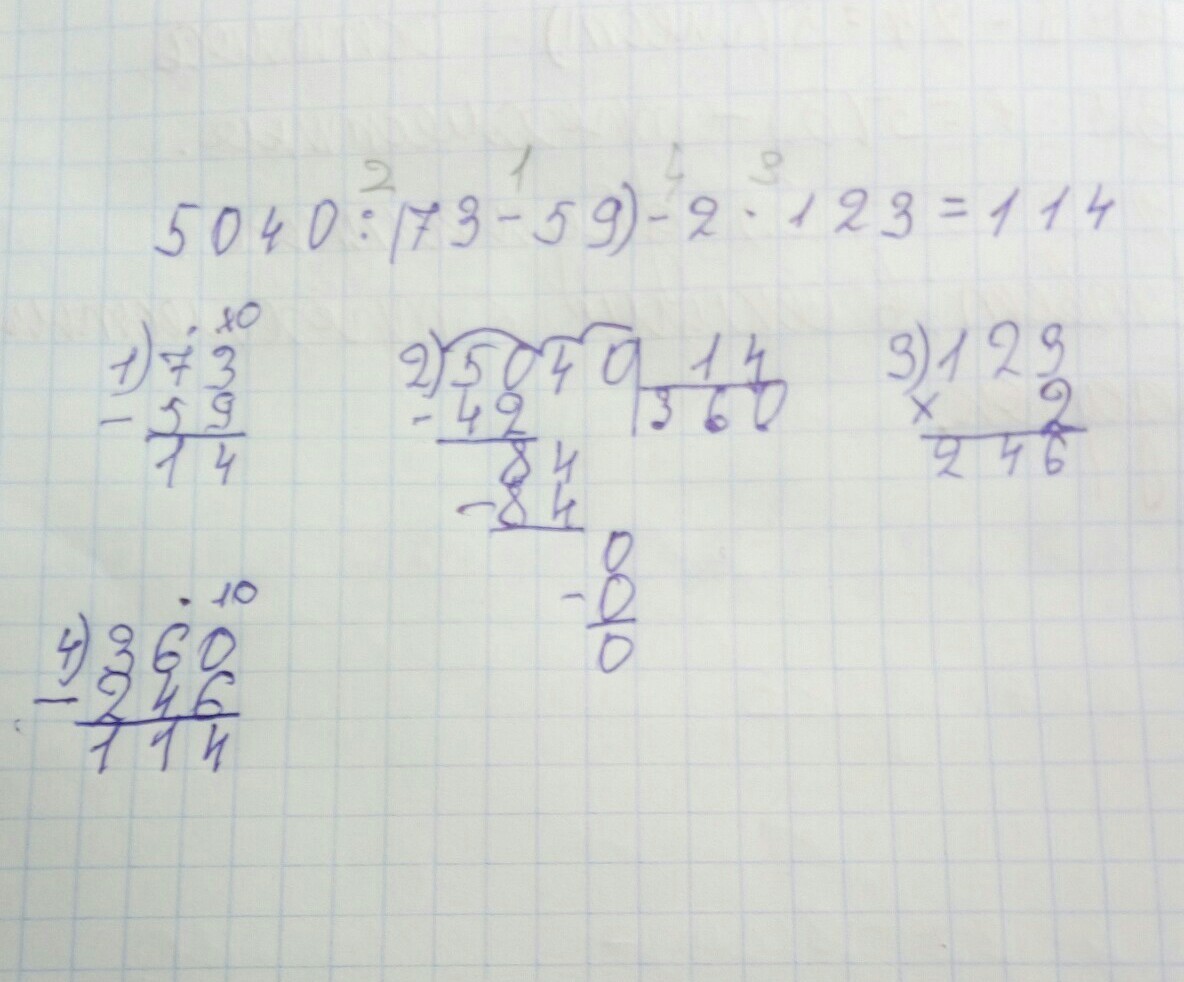 2 1 4 3
5040:(73-59)-2·123=114
1) 73 - 59 = 14
. 10
2) 5040 | 14
-42 | 360
84
-84
0
-0
0
3) 123
× 2
246
. 10
4) 360
-246
114